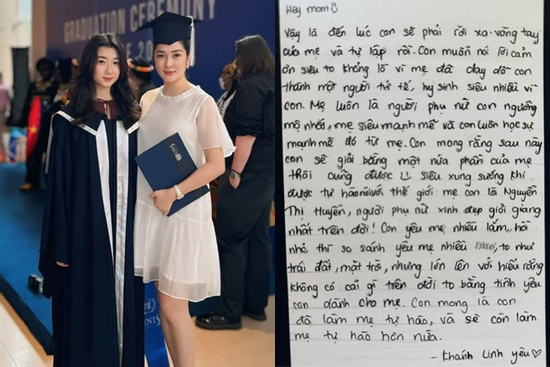 GRADUATION CEREMONY
Hey mom
Vậy là đến lúc con sẽ phải rời xa vòng tay
của mẹ và tự lập rồi. Con muốn nói lời cảm
ơn siêu to khổng lồ vì mẹ đã dạy dỗ con
thành một người tử tế, hy sinh siêu nhiều vì
con. Mẹ luôn là người phụ nữ con ngưỡng
mộ nhất, mẹ siêu mạnh mẽ và con luôn học sự
mạnh mẽ đó từ mẹ. Con mong rằng sau này
con sẽ giỏi bằng một nửa phần của mẹ
thôi cũng được siêu sung sướng khi
được tự hào với thế giới mẹ con là Nguyễn
Thị Huyền, người phụ nữ xinh đẹp giỏi giang
nhất trên đời! Con yêu mẹ nhiều lắm, hồi
nhỏ thì so sánh yêu mẹ nhiều to như
trái đất, mặt trời, nhưng lớn lên với hiểu rằng
không có cái gì trên đời to bằng tình yêu
con dành cho mẹ. Con mong là con
đã làm mẹ tự hào, và sẽ còn làm
mẹ tự hào hơn nữa.
- Khánh Linh yêu